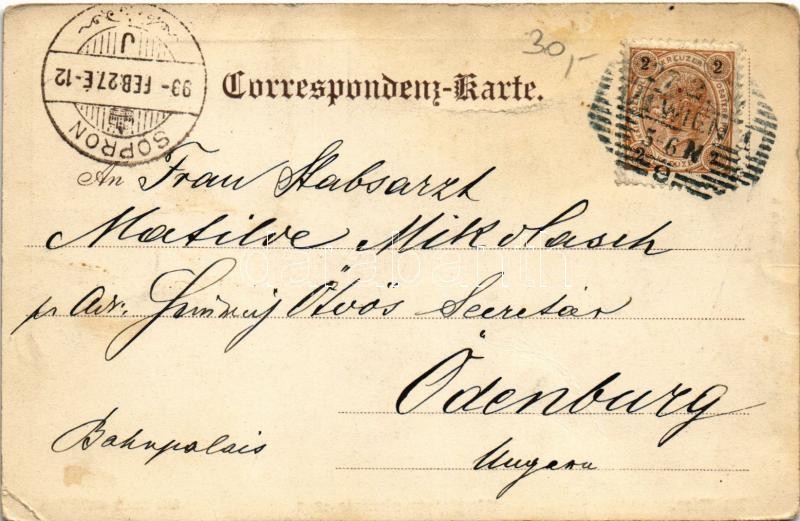 SOPRON
93-FEB.27.É-12
J
30,-
Correspondenz-Karte.
2 KREUZER 2
WIEN
An Frau Stabsarzt
Matilde Mikolasch
pr Adr. Ötvös Secretär
Ödenburg
Bahnpalais
Ungarn
darabanth